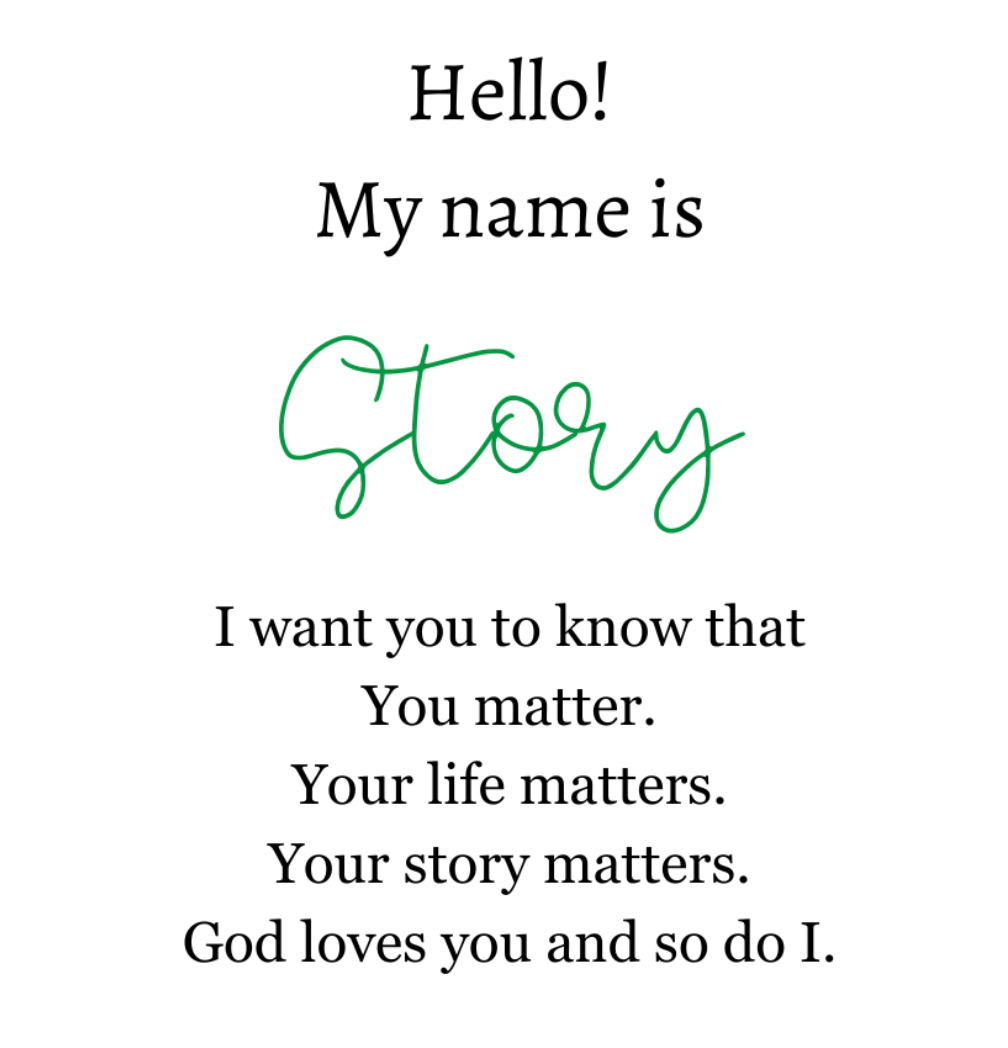 Hello!
My name is
Story
I want you to know that
You matter.
Your life matters.
Your story matters.
God loves you and so do I.